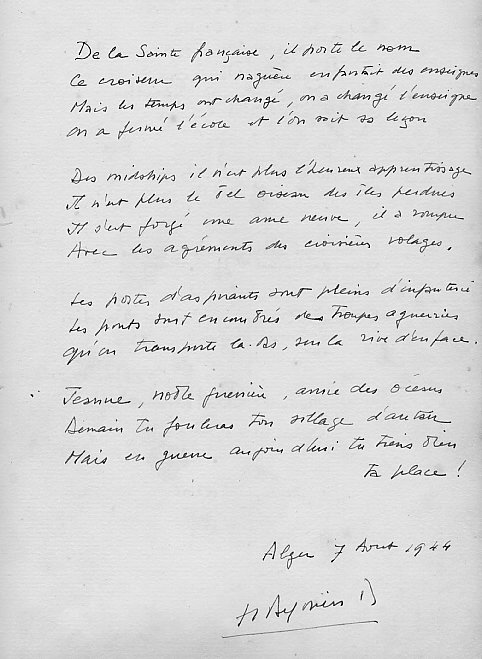 De la Sainte française, il porte le nom
Ce croiseur qui naguère emportait des enseignes
Mais les temps ont changé, on a changé l'enseigne
On a fermé l'école et l'on sait sa leçon
Des midships il n'est plus l'heureux apprentissage
Il n'est plus le bel oiseau des îles perdues
Il s'est forgé une ame neuve, il a rompu
Avec les agréments des croisières volages.
Les postes d'aspirants sont pleins d'infanterie
Les ponts sont encombrés des troupes aguerries
qu'on transporte la-bas, sur la rive d'en face.
Jeanne, noble guerrière, amie des océans
Demain tu fouleras ton sillage d'antan
Mais en guerre aujourd'hui tu tiens bien
ta place !
Alger 7 Aout 1944